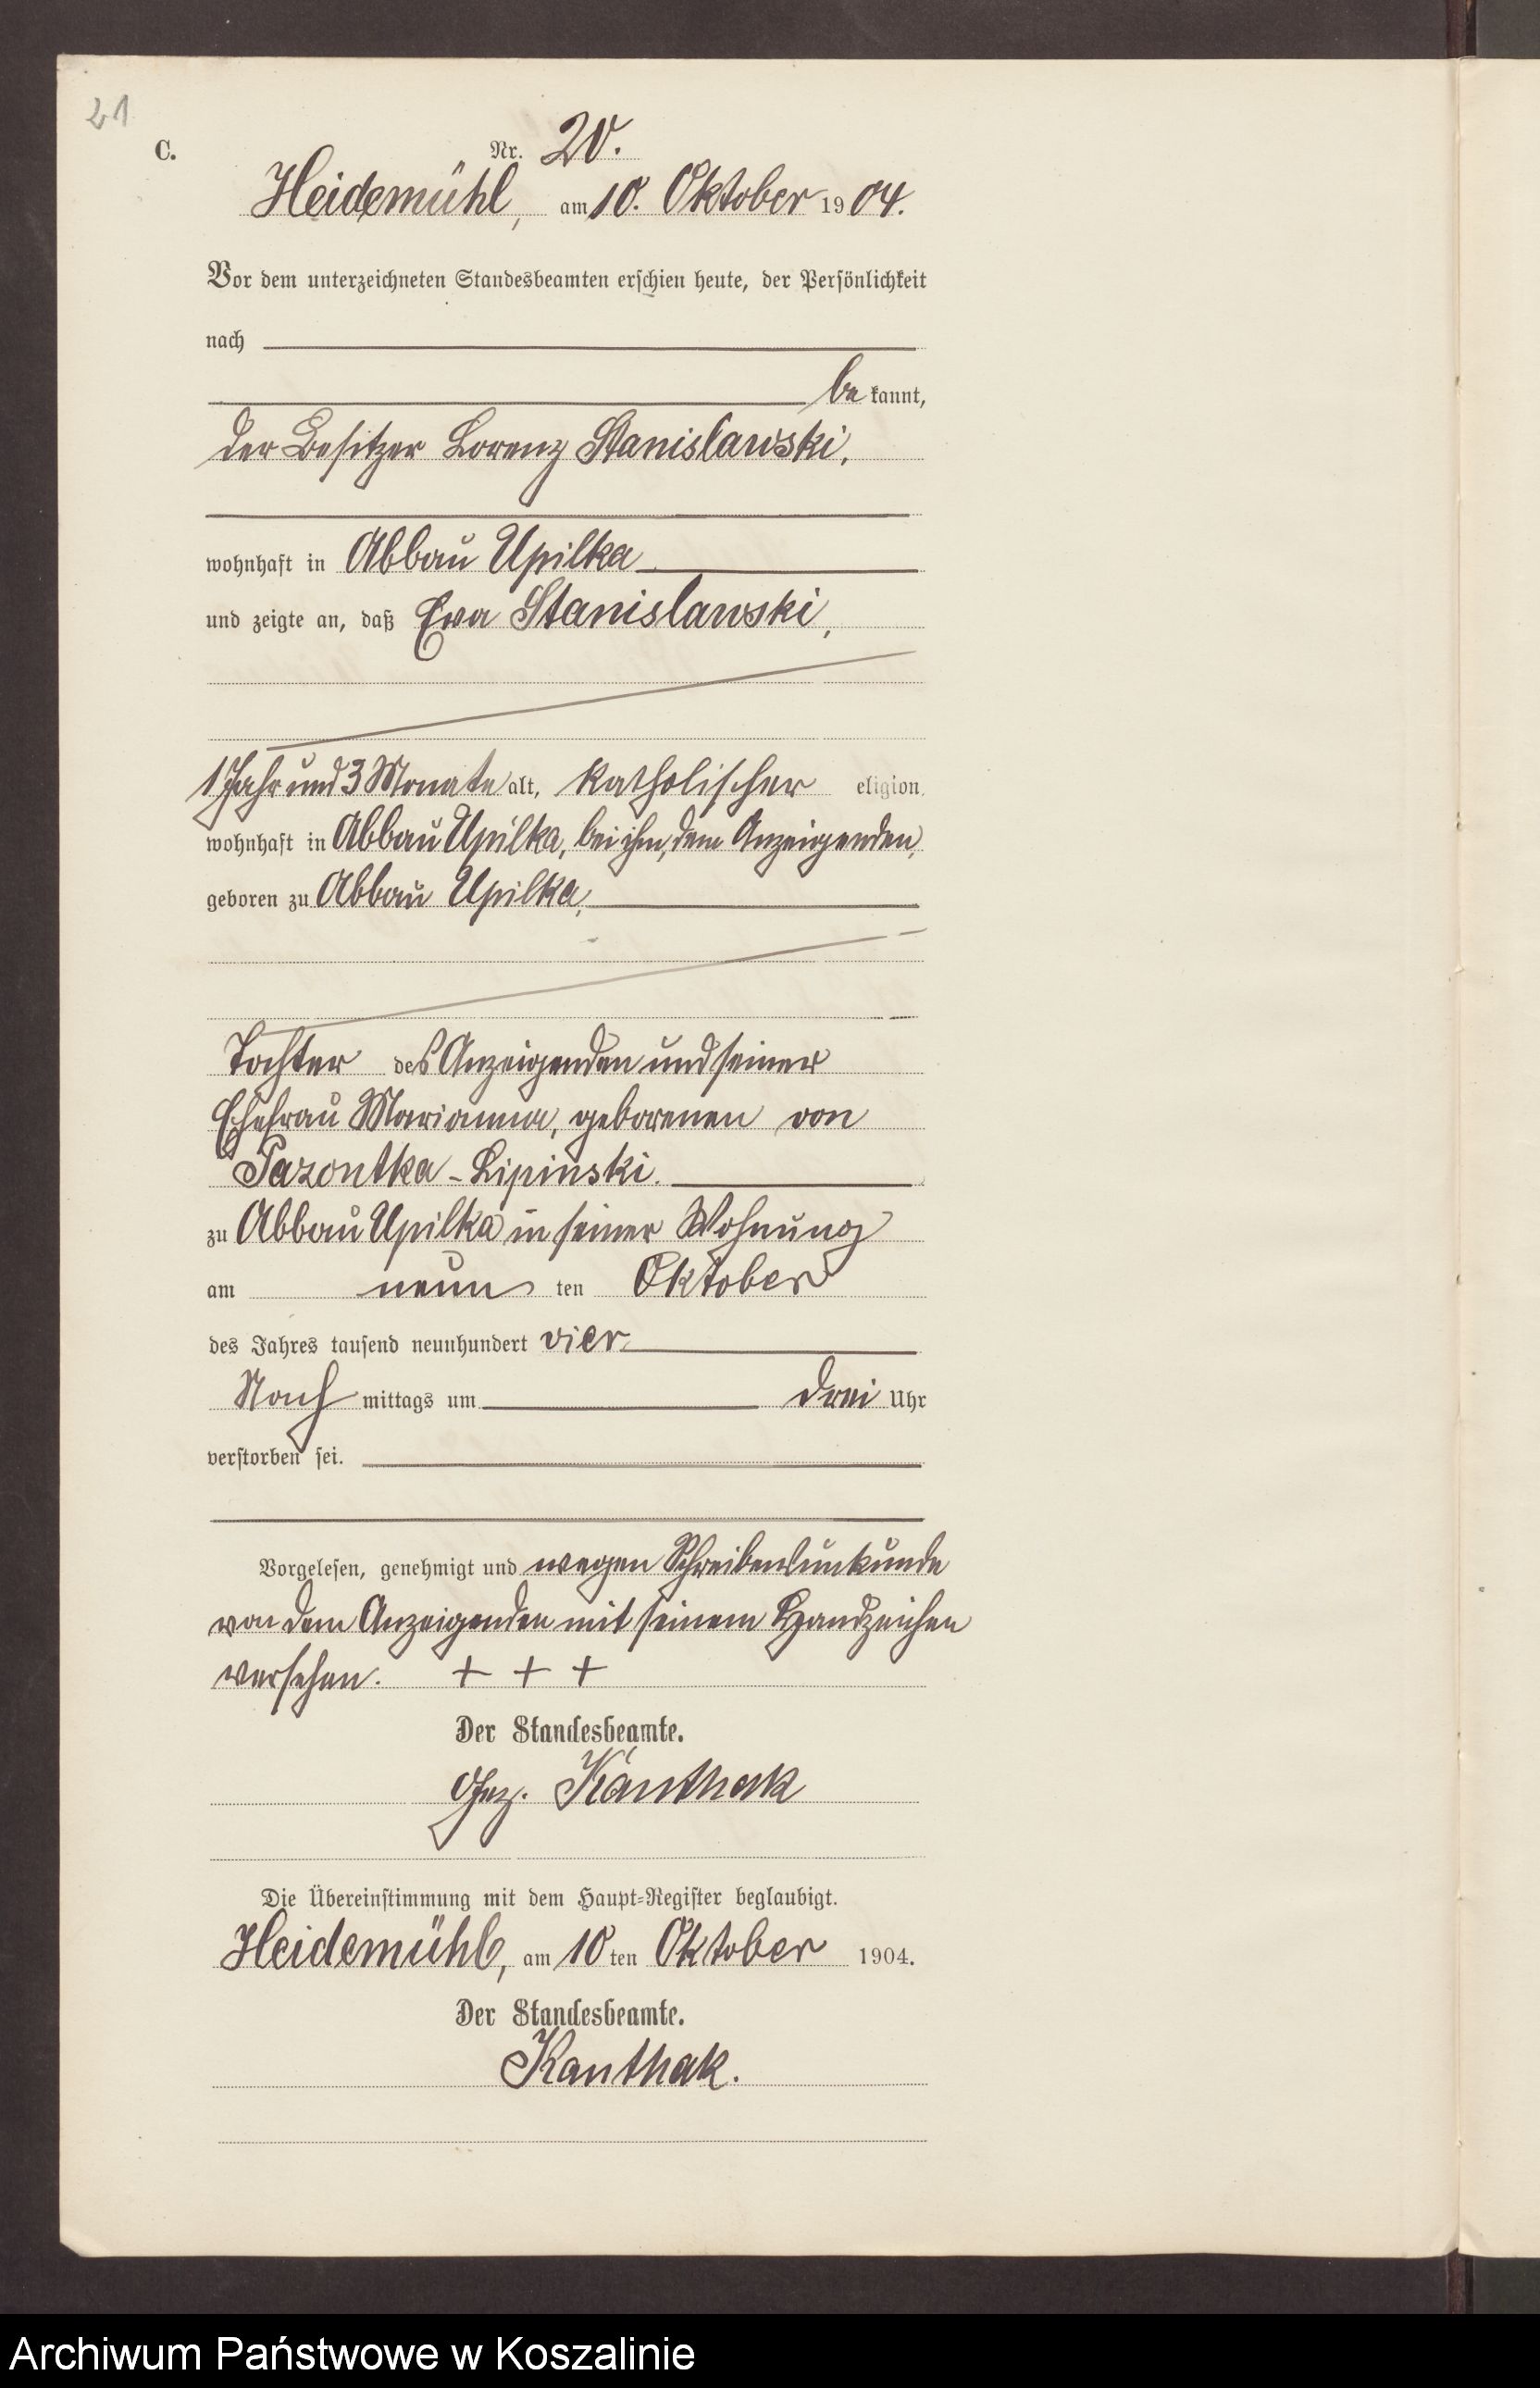 21
C.
Nr. 20.
Heidemühl, am 10. Oktober 1904.
Vor dem unterzeichneten Standesbeamten erschien heute, der Persönlichkeit
nach
bekannt,
der Besitzer Lorenz Stanislawski,
wohnhaft in Abbau Upilka
und zeigte an, daß Eva Stanislawski,
1 Jahr und 3 Monate alt, katholischer eligion,
wohnhaft in Abbau Upilka, bei ihm, dem Anzeigenden,
geboren zu Abbau Upilka,
Tochter des Anzeigenden und seiner
Ehefrau Marianna, geborenen von
Pazontka-Lipinski.
zu Abbau Upilka in seiner Wohnung
am neunten Oktober
des Jahres tausend neunhundert vier
Nachmittags um drei Uhr
verstorben sei.
Vorgelesen, genehmigt und wegen Schreibensunkunde
von dem Anzeigenden mit seinem Handzeichen
versehen. + + +
Der Standesbeamte.
Gez. Kanthak
Die Übereinstimmung mit dem Haupt-Register beglaubigt.
Heidemühl, am 10ten Oktober 1904.
Der Standesbeamte.
Kanthak.
Archiwum Państwowe w Koszalinie